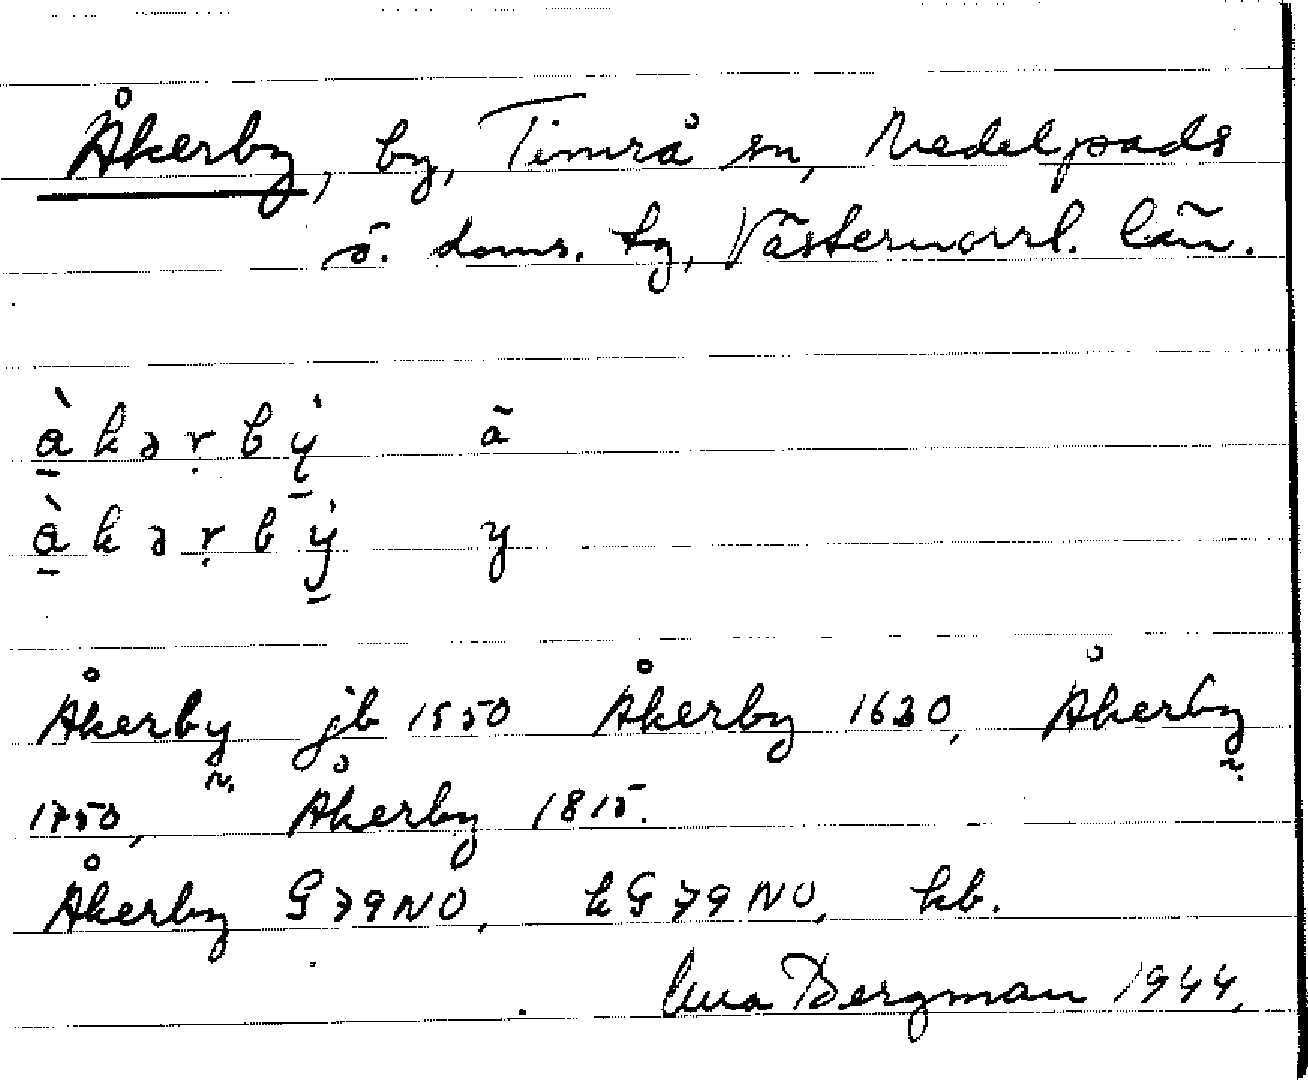 Åkerby, by, Timrå sn, Medelpads
ö. doms. tg, Västernorrl. län.
à̱ k ə ṛ b ẏ̱ ā
à̱ k ə ṛ b ẏ̱ y
Åkerby jb 1550 Åkerby 1630, Åkerby
1750, Åkerby 1815.
Åkerby G 79 NO, kG 79 NO, kb.
Bergman 1944.